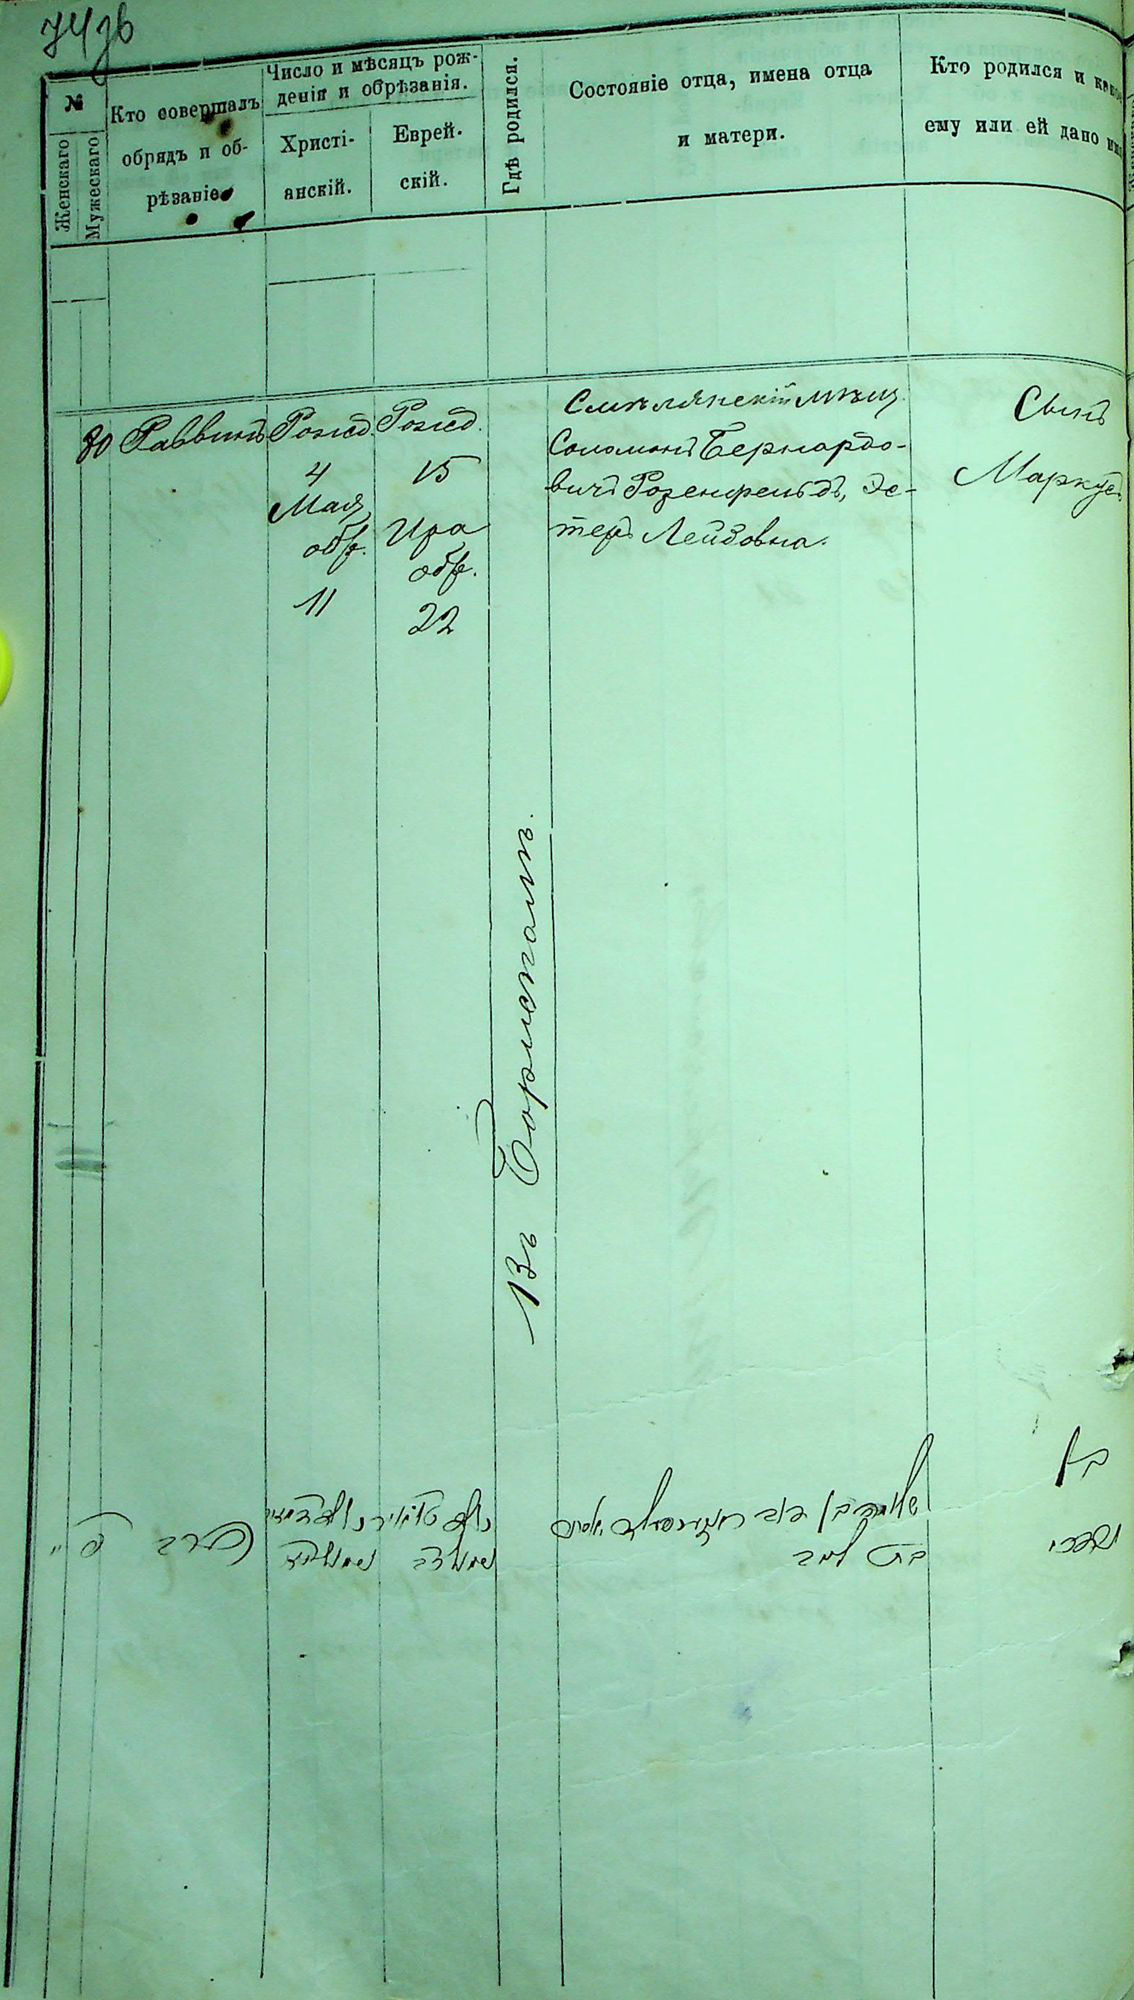 74 зв
№
Женскаго
Мужескаго
Кто совершалъ
обрядъ и об-
рѣзаніе
Число и мѣсяцъ рож-
денія и обрѣзанія.
Христі-
анскій.
Еврей-
скій.
Гдѣ родился.
Состояніе отца, имена отца
и матери.
Кто родился и како
ему или ей дано им
80
Раввинъ
Рожд.
4
Мая
обр.
11
Рожд.
15
Ира
обр.
22
Въ Борисполѣ.
Смѣлянскій мѣщ.
Соломонъ Бернардо-
вичъ Розенфельдъ, Эс-
теръ Лейбовна.
Сынъ
Маркусъ
פ
הרב
בת ליב
בן